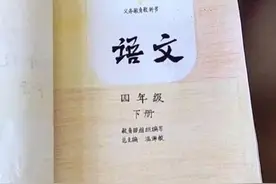 义务教育教科书
语文
四年级
下册
教育部组织编写
总主编 温儒敏